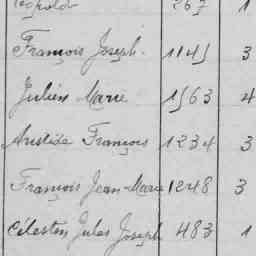 Léopold 267 1
François Joseph 1145 3
Julien Marie 1563 4
Aristide François 1234 3
François Jean-Marie 1248 3
Célestin Jules Joseph 483 1